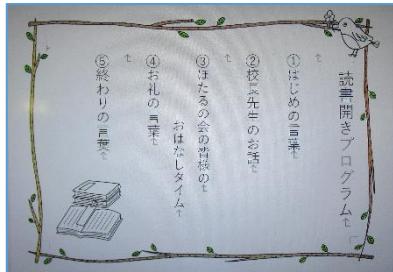 読書開きプログラム
①はじめの言葉
②校長先生のお話
③ほたるの会の皆様の
おはなしタイム
④お礼の言葉
⑤終わりの言葉